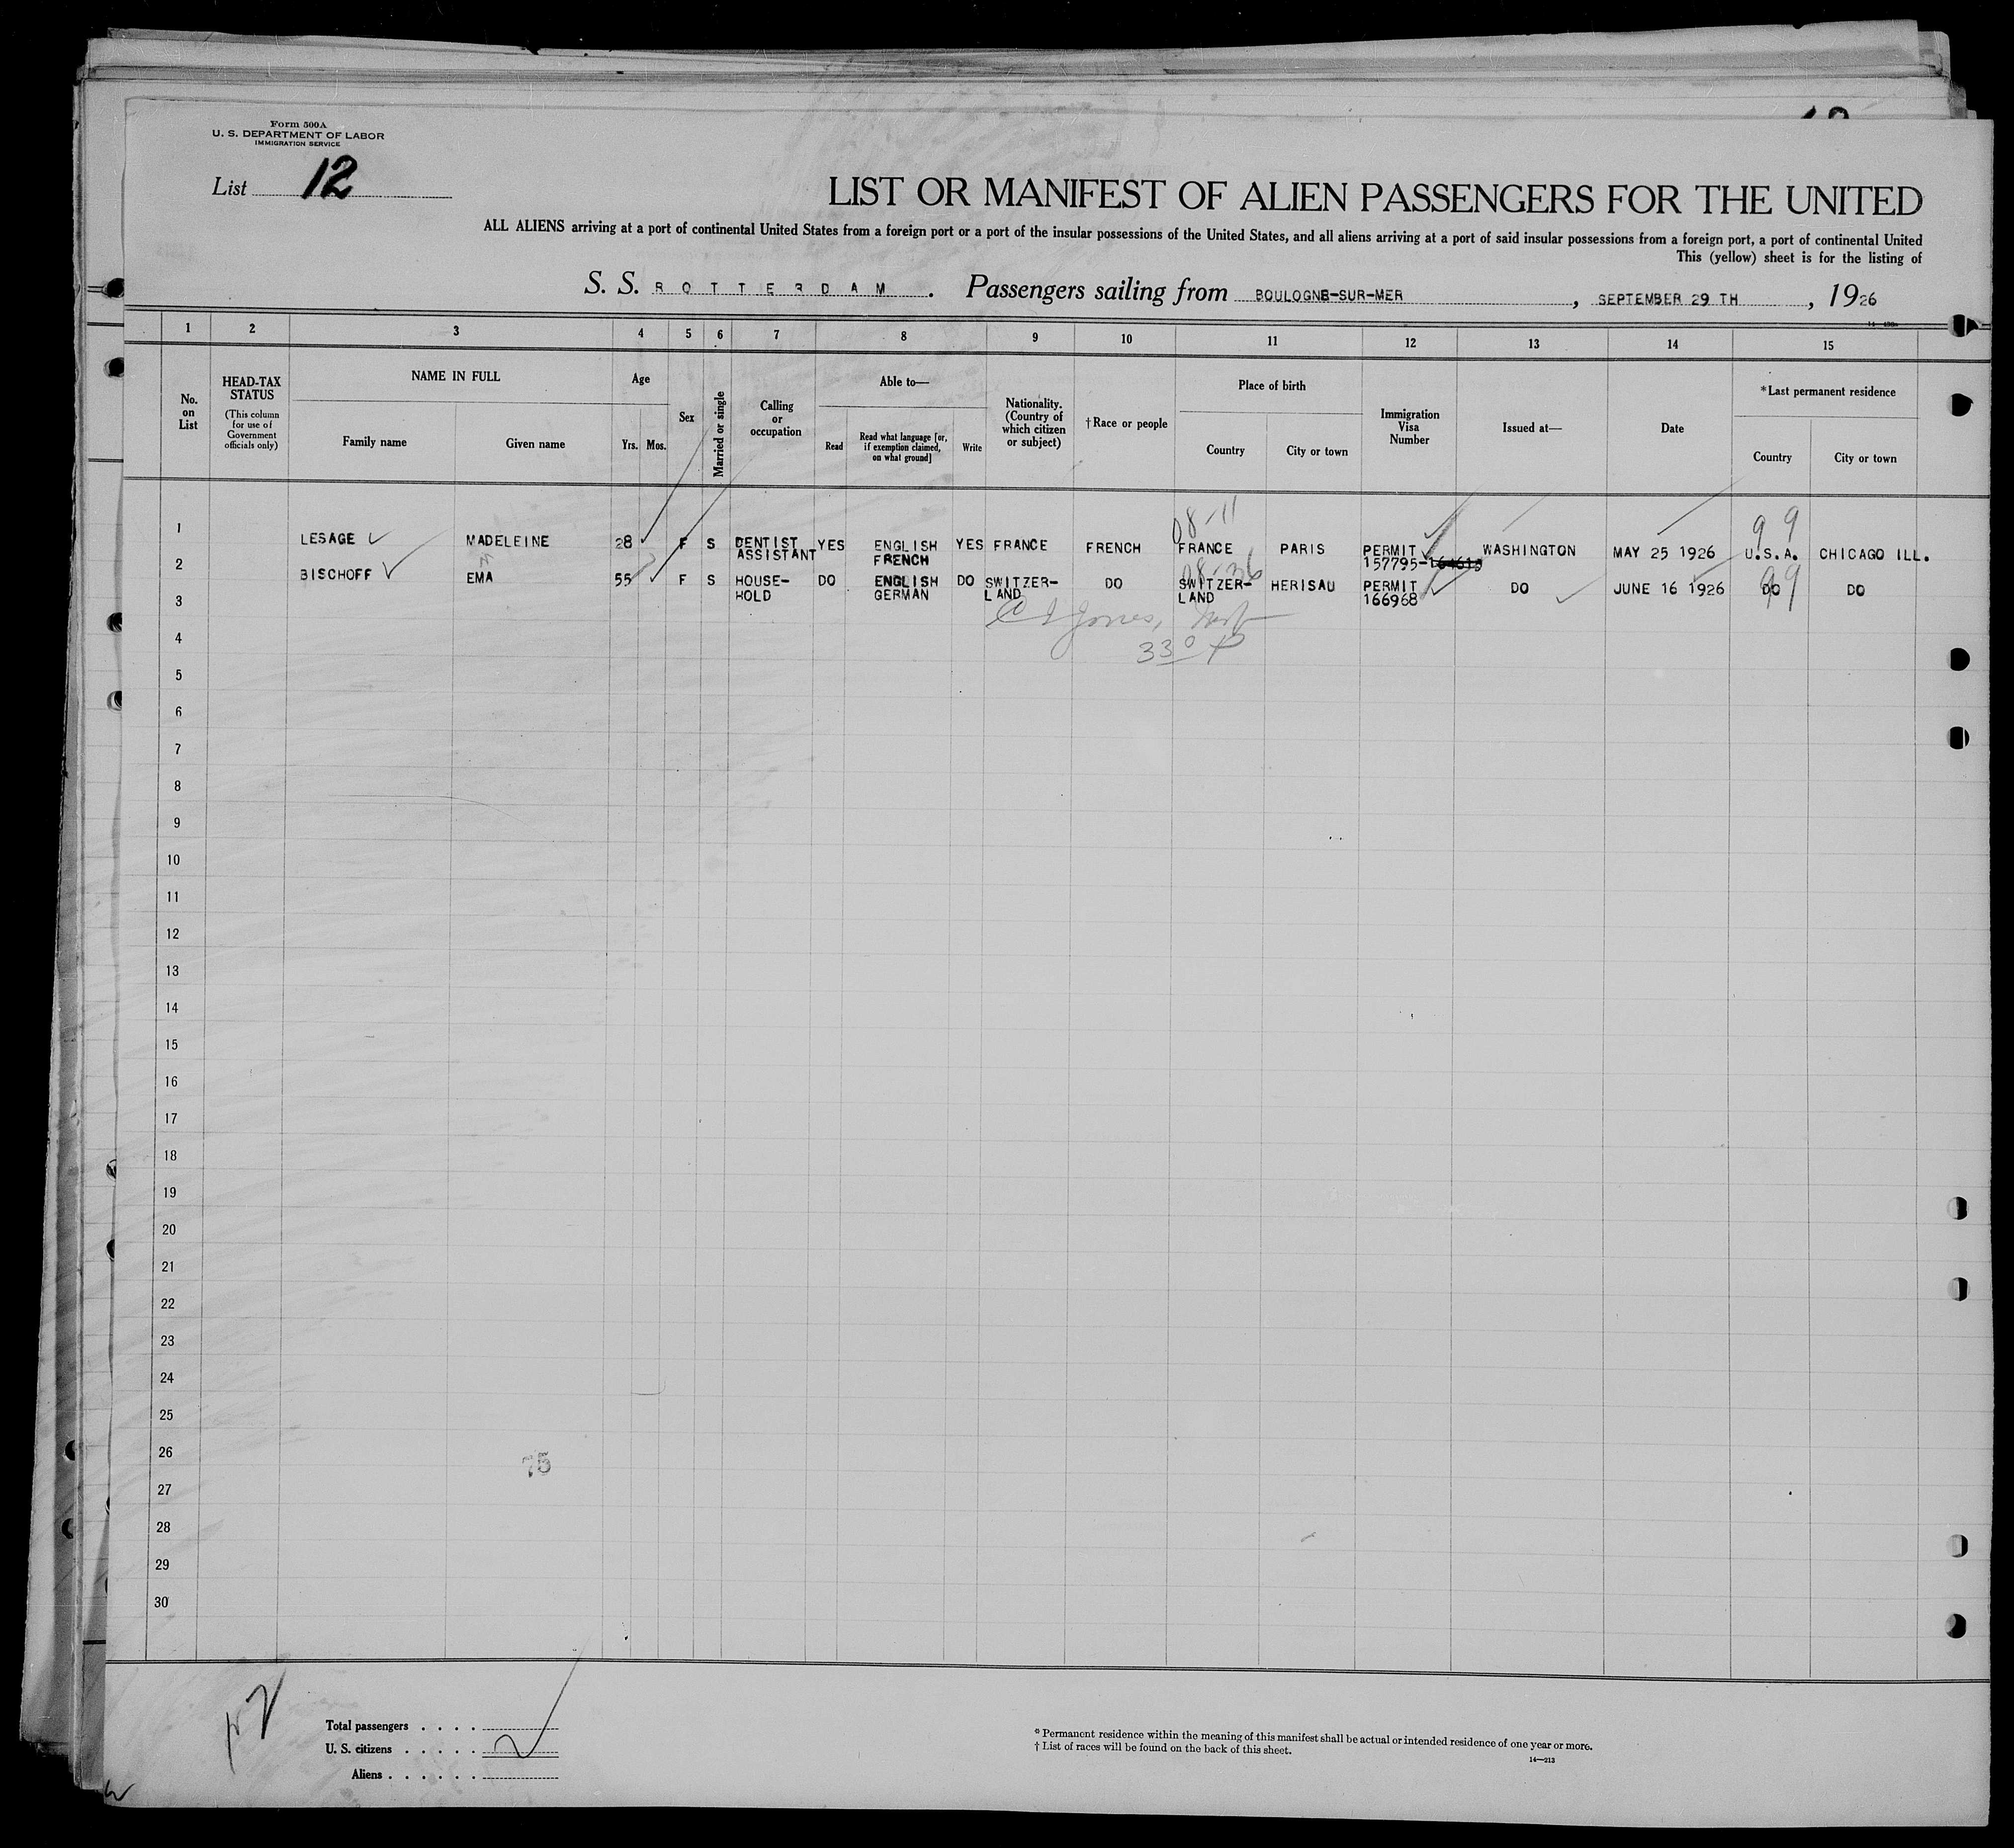 Form 500A
U. S. DEPARTMENT OF LABOR
IMMIGRATION SERVICE
List 12
LIST OR MANIFEST OF ALIEN PASSENGERS FOR THE UNITED
ALL ALIENS arriving at a port of continental United States from a foreign port or a port of the insular possessions of the United States, and all aliens arriving at a port of said insular possessions from a foreign port, a port of continental United
This (yellow) sheet is for the listing of
S. S. ROTTERDAM. Passengers sailing from BOULOGNE-SUR-MER, SEPTEMBER 29 TH, 1926
1 2 3 4 5 6 7 8 9 10 11 12 13 14 15
No. on List
HEAD-TAX STATUS
(This column for use of Government officials only)
NAME IN FULL
Family name
Given name
Age
Yrs. Mos.
Sex
Married or single
Calling or occupation
Able to—
Read
Read what language [or, if exemption claimed, on what ground]
Write
Nationality. (Country of which citizen or subject)
† Race or people
Place of birth
Country
City or town
Immigration Visa Number
Issued at—
Date
*Last permanent residence
Country
City or town
08-11
99
1 LESAGE MADELEINE 28 F S DENTIST YES ENGLISH YES FRANCE FRENCH FRANCE PARIS PERMIT WASHINGTON MAY 25 1926 U.S.A. CHICAGO ILL.
ASSISTANT FRENCH 157795-
M
08-36
99
2 BISCHOFF EMA 55 F S HOUSE- DO ENGLISH DO SWITZER- DO SWITZER- HERISAU PERMIT DO JUNE 16 1926 DO DO
HOLD GERMAN LAND LAND 166968
3
Jones,
4
330
5
6
7
8
9
10
11
12
13
14
15
16
17
18
19
20
21
22
23
24
25
26
75
27
28
29
30
Total passengers
U. S. citizens
Aliens
* Permanent residence within the meaning of this manifest shall be actual or intended residence of one year or more.
† List of races will be found on the back of this sheet.
14—213